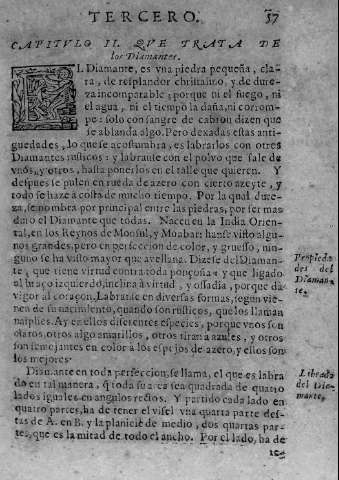 TERCERO. 57
CAPITVLO II. QVE TRATA DE
los Diamantes.
EL Diamante, es vna piedra pequeña, cla-
ra, de resplandor christalino, y de dure-
za incomparable: porque ni el fuego, ni
el agua, ni el tiempo la daña, ni corrom-
pe: solo con sangre de cabron dizen que
se ablanda algo. Pero dexadas estas anti-
guedades, lo que se acostumbra, es labrarlos con otros
Diamantes rusticos: y labranse con el polvo que sale de
vnos, y otros, hasta ponerlos en el talle que quieren. Y
despues se pulen en rueda de azero con cierto azeyte, y
todo se haze à costa de mucho tiempo. Por la qual dure-
ça, se nombra por principal entre las piedras, por ser mas
duro el Diamante que todas. Nacen en la India Orien-
tal, en los Reynos de Monsul, y Moabar: hanse visto algu-
nos grandes, pero en perfeccion de color, y gruesso, ningu-
no se ha visto mayor que avellana. Dizese del Diaman-
te, que tiene virtud contra toda ponçoña: y que ligado
al braço izquierdo, inclina à virtud, y ossadia, porque da
vigor al coraçon. Labranse en diversas formas, segun vie-
nen de su nacimiento, quando son rusticos, que los llaman
naiphes. Ay en ellos diferentes especies, porque vnos son
claros, otros algo amarillos, otros tiran a azules, y otros
son semejantes en color a los espejos de azero, y ellos son
los mejores.
Propieda
des del
Diaman
te.
Diamante en toda perfeccion, se llama, el que es labra
do en tal manera, q̃ toda su area sea quadrada de quatro
lados iguales en angulos rectos. Y partido cada lado en
quatro partes, ha de tener el visel vna quarta parte des-
tas de A. en B. y la planicie de medio, dos quartas par-
tes, que es la mitad de todo el ancho. Por el lado, ha de
Librado
del Dia-
mante,